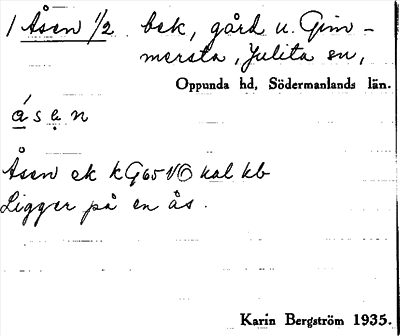 1 Åsen 1/2 bek, gård u. Gim-
mersta, Julita sn,
Oppunda hd, Södermanlands län.
åsen
Åsen ek k G65 NO kal kb
Ligger på en ås.
Karin Bergström 1935.